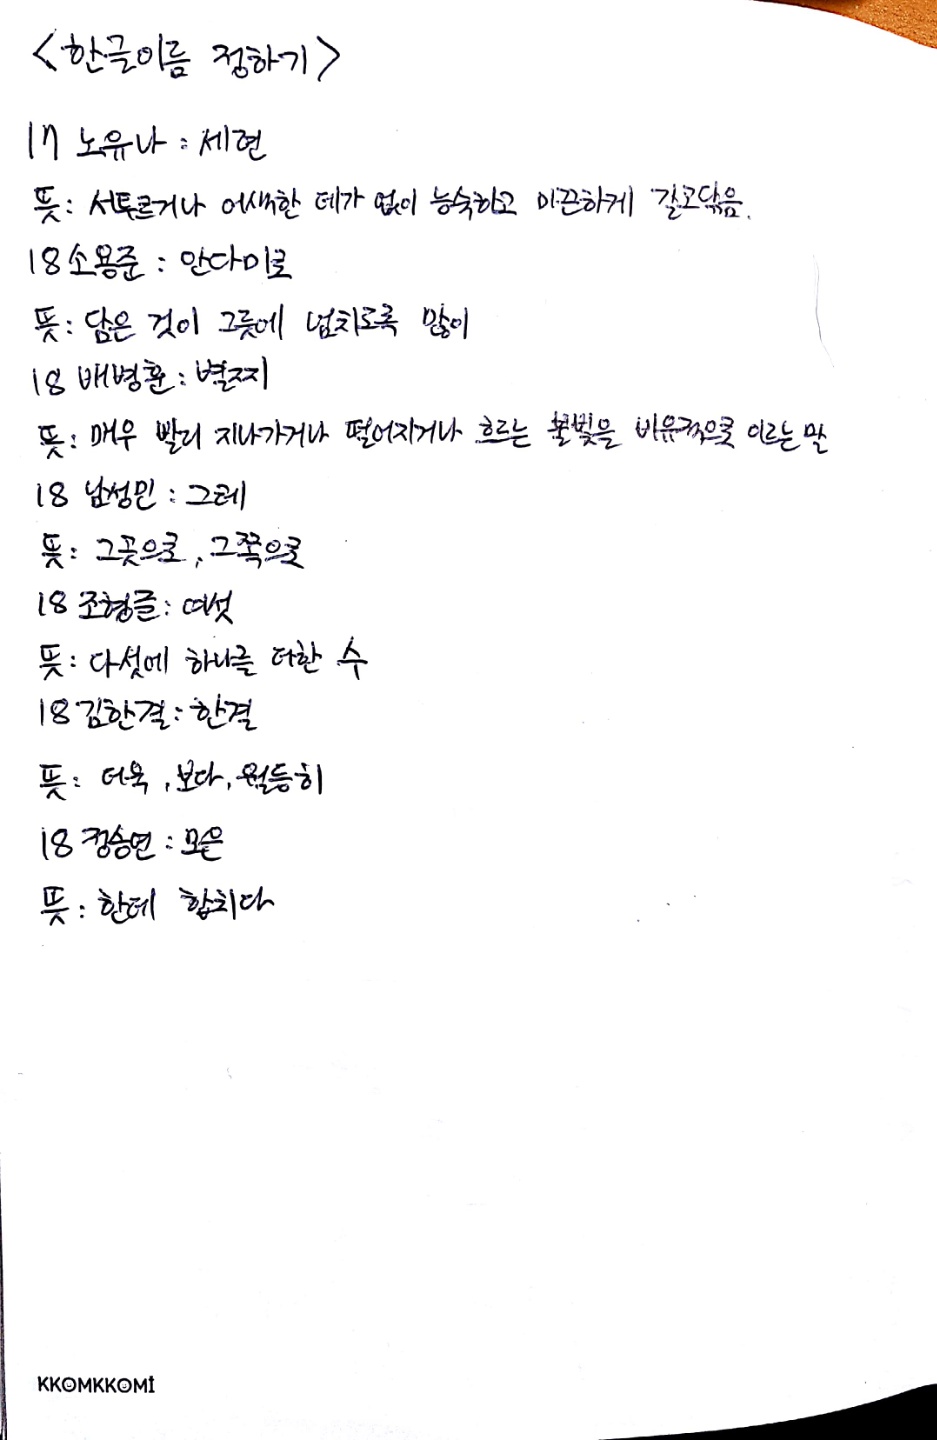 <한글이름 정하기>
17 노유나 : 세련
뜻 : 서투르거나 어색한 데가 없이 능숙하고 미끈하게 갈고닦음.
18 소용준 : 안다미로
뜻 : 담은 것이 그릇에 넘치도록 많이
18 배병훈 : 별찌
뜻 : 매우 빨리 지나가거나 떨어지거나 흐르는 불빛을 비유적으로 이르는 말
18 남성민 : 그레
뜻 : 그곳으로, 그쪽으로
18 조형글 : 여섯
뜻 : 다섯에 하나를 더한 수
18 김한결 : 한결
뜻 : 더욱, 보다, 월등히
18 정승연 : 모은
뜻 : 한데 합치다
KKOMKKOMI